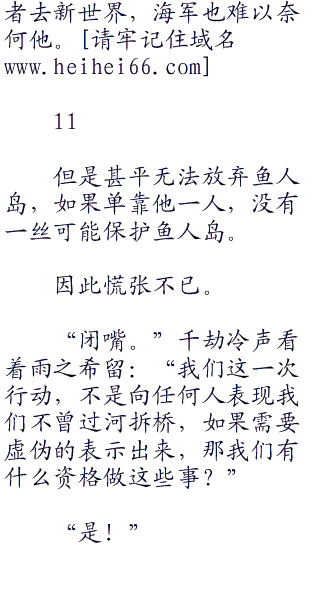 者去新世界，海军也难以奈
何他。[请牢记住域名
www.heihei66.com]
11
但是甚平无法放弃鱼人
岛，如果单靠他一人，没有
一丝可能保护鱼人岛。
因此慌张不已。
“闭嘴。”千劫冷声看
着雨之希留：“我们这一次
行动，不是向任何人表现我
们不曾过河拆桥，如果需要
虚伪的表示出来，那我们有
什么资格做这些事？”
“是！”